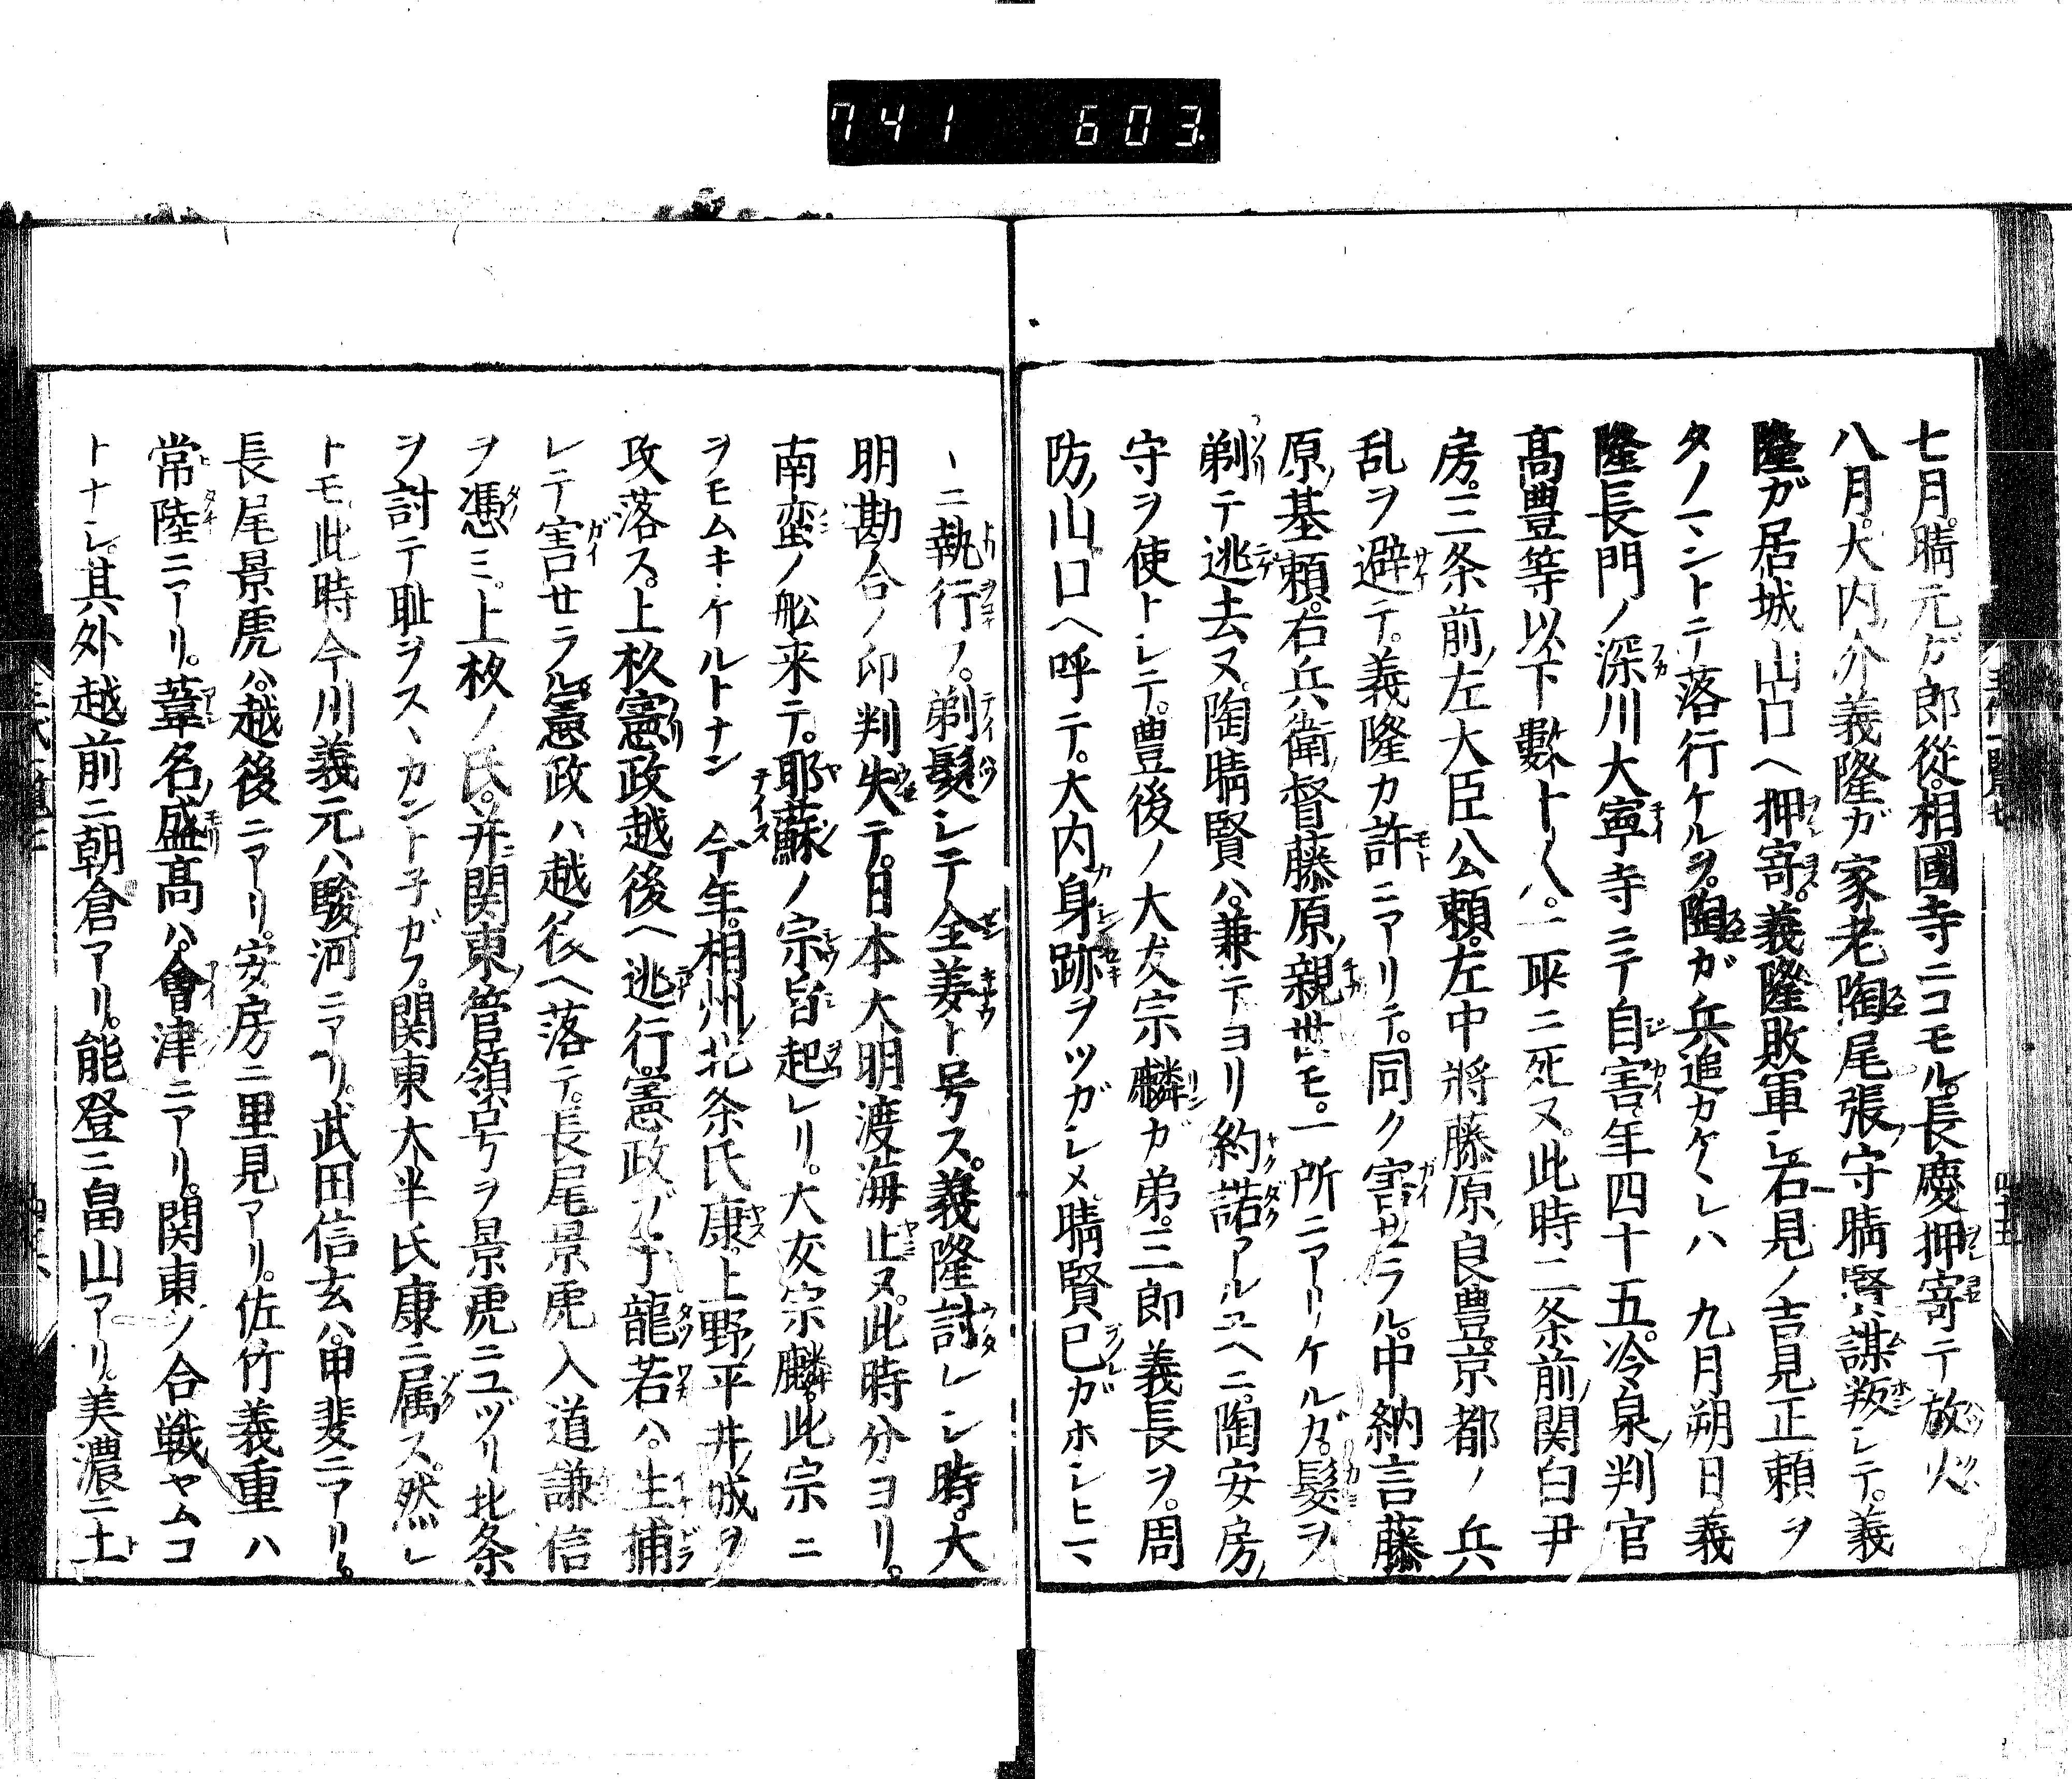 741 603
七月。晴元ガ郎從。相國寺ニコモル。長慶押寄テ放火
八月。大内介義隆ガ家老陶尾張守晴賢謀叛シテ。義
隆ガ居城山口ヘ押寄。義隆敗軍シ。石見ノ吉見正頼ヲ
タノマントニテ落行ケルヲ。陶ガ兵追カケシハ 九月朔日義
隆長門ノ深川大寧寺ニテ自害。年四十五。冷泉判官
髙豊等以下數十人。一所ニ死ヌ。此時二条前関白尹
房。三条前左大臣公頼。左中將藤原良豊。京都ノ兵
乱ヲ避テ。義隆カ許ニアリテ。同ク害セラル。中納言藤
原基頼。右兵衛督藤原親世モ。一所ニアリケルガ。髮ヲ
剃テ逃去ヌ。陶晴賢ハ。兼テヨリ約諾アルユヘニ。陶安房
守ヲ使トシテ。豊後ノ大友宗麟ガ弟。三郎義長ヲ。周
防ノ山口ヘ呼テ。大内身跡ヲツガシメ。晴賢已ガホシヒマ
丶ニ執行ノ。剃髮シテ全姜ト号ス。義隆討レシ時。大
明勘合ノ印判失テ。日本大明渡海止ヌ。此時分ヨリ。
南蛮ノ舩来テ。耶蘇ノ宗旨起レリ。大友宗麟。此宗ニ
ヲモムキケルトナン 今年。相州北条氏康。上野平井城ヲ
攻落ス。上杦憲政越後ヘ逃行。憲政ガ子龍若ハ。生捕
レテ害セラル。憲政ハ越後ヘ落テ。長尾景虎入道謙信
ヲ憑ミ。上杦ノ氏。并関東管領号ヲ景虎ニユヅリ北条
ヲ討テ耻ヲスヽカント子ガフ。関東大半氏康ニ属ス。然レ
トモ此時今川義元ハ駿河ニアリ。武田信玄ハ。甲斐ニアリ。
長尾景虎ハ。越後ニアリ。安房ニ里見アリ。佐竹義重ハ
常陸ニアリ。葦名盛髙ハ。會津ニアリ。関東ノ合戦ヤムコ
トナシ。其外越前ニ朝倉アリ。能登ニ畠山アリ。美濃ニ土